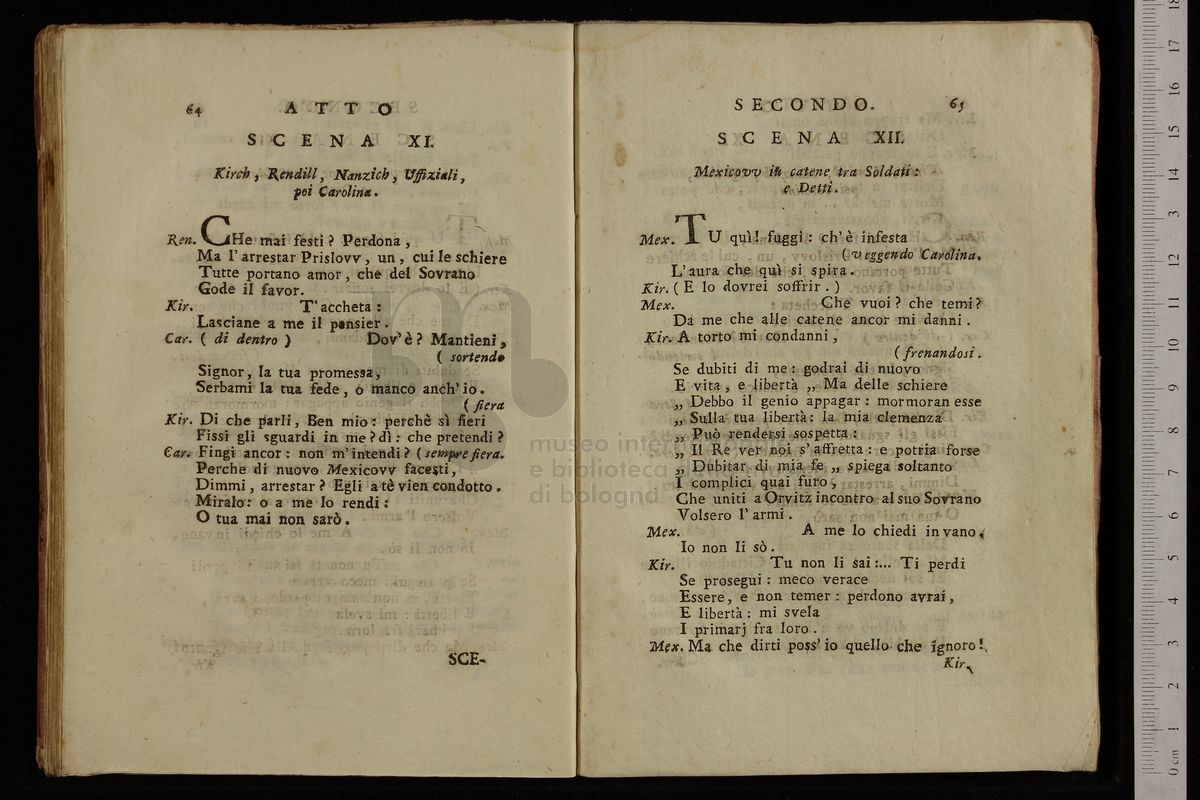 64 ATTO
SCENA XI.
Kirch, Rendill, Nanzich, Uffiziali,
poi Carolina.
Ren. CHe mai festi? Perdona,
Ma l'arrestar Prislovv, un, cui le schiere
Tutte portano amor, che del Sovrano
Gode il favor.
Kir. T'accheta:
Lasciane a me il pensier.
Car. (di dentro) Dov'è? Mantieni,
(sortendo
Signor, la tua promessa,
Serbami la tua fede, o manco anch'io.
(fiera
Kir. Di che parli, Ben mio: perchè sì fieri
Fissi gli sguardi in me? dì: che pretendi?
Car. Fingi ancor: non m'intendi? (sempre fiera.
Perche di nuovo Mexicovv facesti,
Dimmi, arrestar? Egli a tè vien condotto.
Miralo: o a me lo rendi:
O tua mai non sarò.
SCE-
SECONDO. 65
SCENA XII.
Mexicovv in catene tra Soldati:
e Detti.
Mex. TU quì! fuggi: ch'è infesta
(veggendo Carolina.
L'aura che quì si spira.
Kir. (E lo dovrei soffrir.)
Mex. Che vuoi? che temi?
Da me che alle catene ancor mi danni.
Kir. A torto mi condanni,
(frenandosi.
Se dubiti di me: godrai di nuovo
E vita, e libertà „ Ma delle schiere
„ Debbo il genio appagar: mormoran esse
„ Sulla tua libertà: la mia clemenza
„ Può rendersi sospetta:
„ Il Re ver noi s'affretta: e potria forse
„ Dubitar di mia fe „ spiega soltanto
I complici quai furo,
Che uniti a Orvitz incontro al suo Sovrano
Volsero l'armi.
Mex. A me lo chiedi in vano,
Io non li sò.
Kir. Tu non li sai:... Ti perdi
Se prosegui: meco verace
Essere, e non temer: perdono avrai,
E libertà: mi svela
I primarj fra loro.
Mex. Ma che dirti poss'io quello che ignoro!
Kir.
museo internazionale
e biblioteca della musica
di bologna